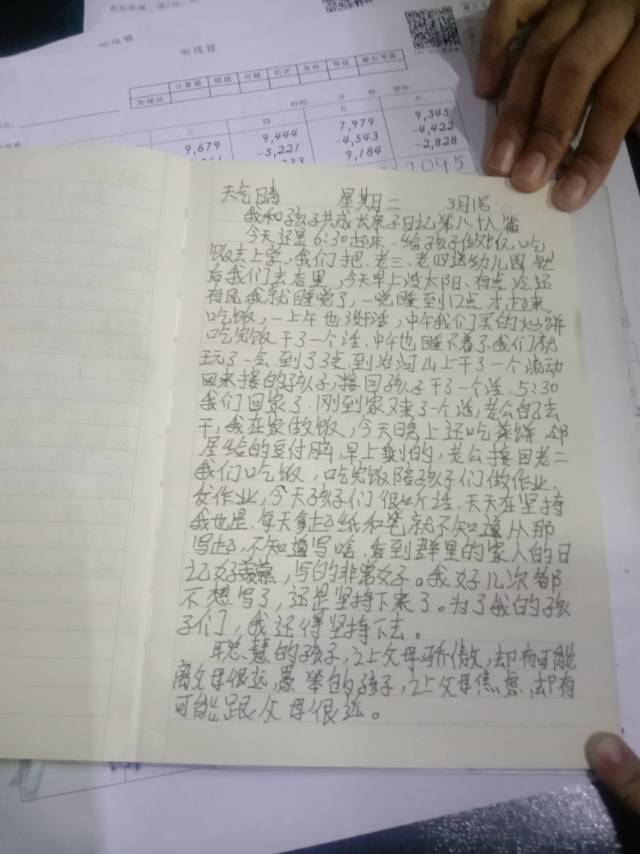 听珠算
计算题 错题 对题 初次 复核 等级 最后等级
加减法
时间: 分 秒 评分:
三 四 五 六
9,679 9,444 7,979 9,345
-5,221 -4,543 -4,422
9,184 -2,828
1095
天气晴 星期二 3月1号
我和孩子共成长亲子日记第八十八篇
今天还是6:30起来.给孩子做饭,吃
饭去上学,我们把.老三.老四送幼儿园.然
后我们去店里,今天早上没太阳.有点冷还
有风我就睡觉了,一觉睡到12点.才起来.
吃饭,一上午也没干活,中午我们买的火烧饼
吃完饭干了一个活.中午也睡不着了我们就
玩了一会.到了3点.到沿河山上干了一个流动
回来接的孩子,接回孩子干了一个活.5:30
我们回家了.刚到家又来了一个活,老公自己去
干,我在家做饭,今天晚上还吃菜饼.邻
居给的豆付脑,早上剩的,老公接回老二
我们吃饭,吃完饭陪孩子们做作业.
女作业,今天孩子们很听话.天天在坚持
我也是.每天拿起纸和笔就不知道从那
写起.不知道写啥.看到群里的家人的日
记好羡慕,写的非常好。我好几次都
不想写了,还是坚持下来了。为了我的孩
子们,我还得坚持下去。
聪慧的孩子,让父母骄傲,却有可能
离父母很远,愚笨的孩子,让父母焦虑,却有
可能跟父母很近。